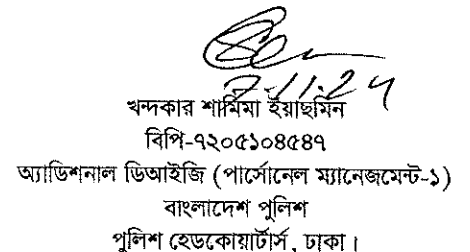 ৭-11-24
খন্দকার শামিমা ইয়াছমিন
বিপি-৭২০৫১০৪৫৪৭
অ্যাডিশনাল ডিআইজি (পার্সোনেল ম্যানেজমেন্ট-১)
বাংলাদেশ পুলিশ
পুলিশ হেডকোয়ার্টার্স, ঢাকা।